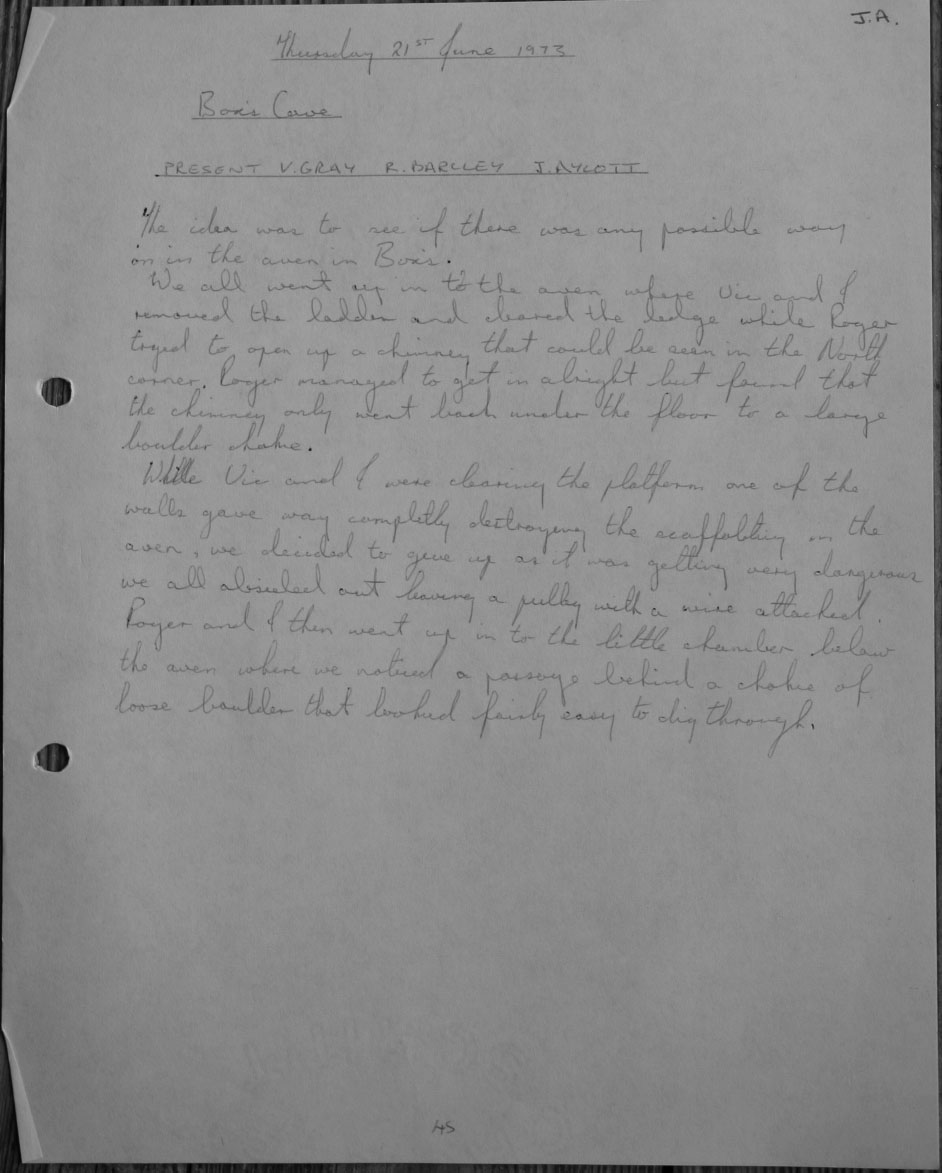 J.A.
Thursday 21ST June 1973
Box's Cave
PRESENT V.GRAY R.BARLLEY J.AYLOTT
The idea was to see if there was any possible way
on in the aven in Box's.
We all went up in to the aven where Vic and I
removed the ladder and cleared the ledge while Roger
tryed to open up a chimney that could be seen in the North
corner. Roger managed to get in alright but found that
the chimney only went back under the floor to a large
boulder choke.
While Vic and I were clearing the platform one of the
walls gave way completly destroying the scaffolding in the
aven, we decided to give up as it was getting very dangerous
we all abseiled out leaving a pulley with a wire attached.
Roger and I then went up in to the little chamber below
the aven where we noticed a passage behind a choke of
loose boulder that looked fairly easy to dig through.
45